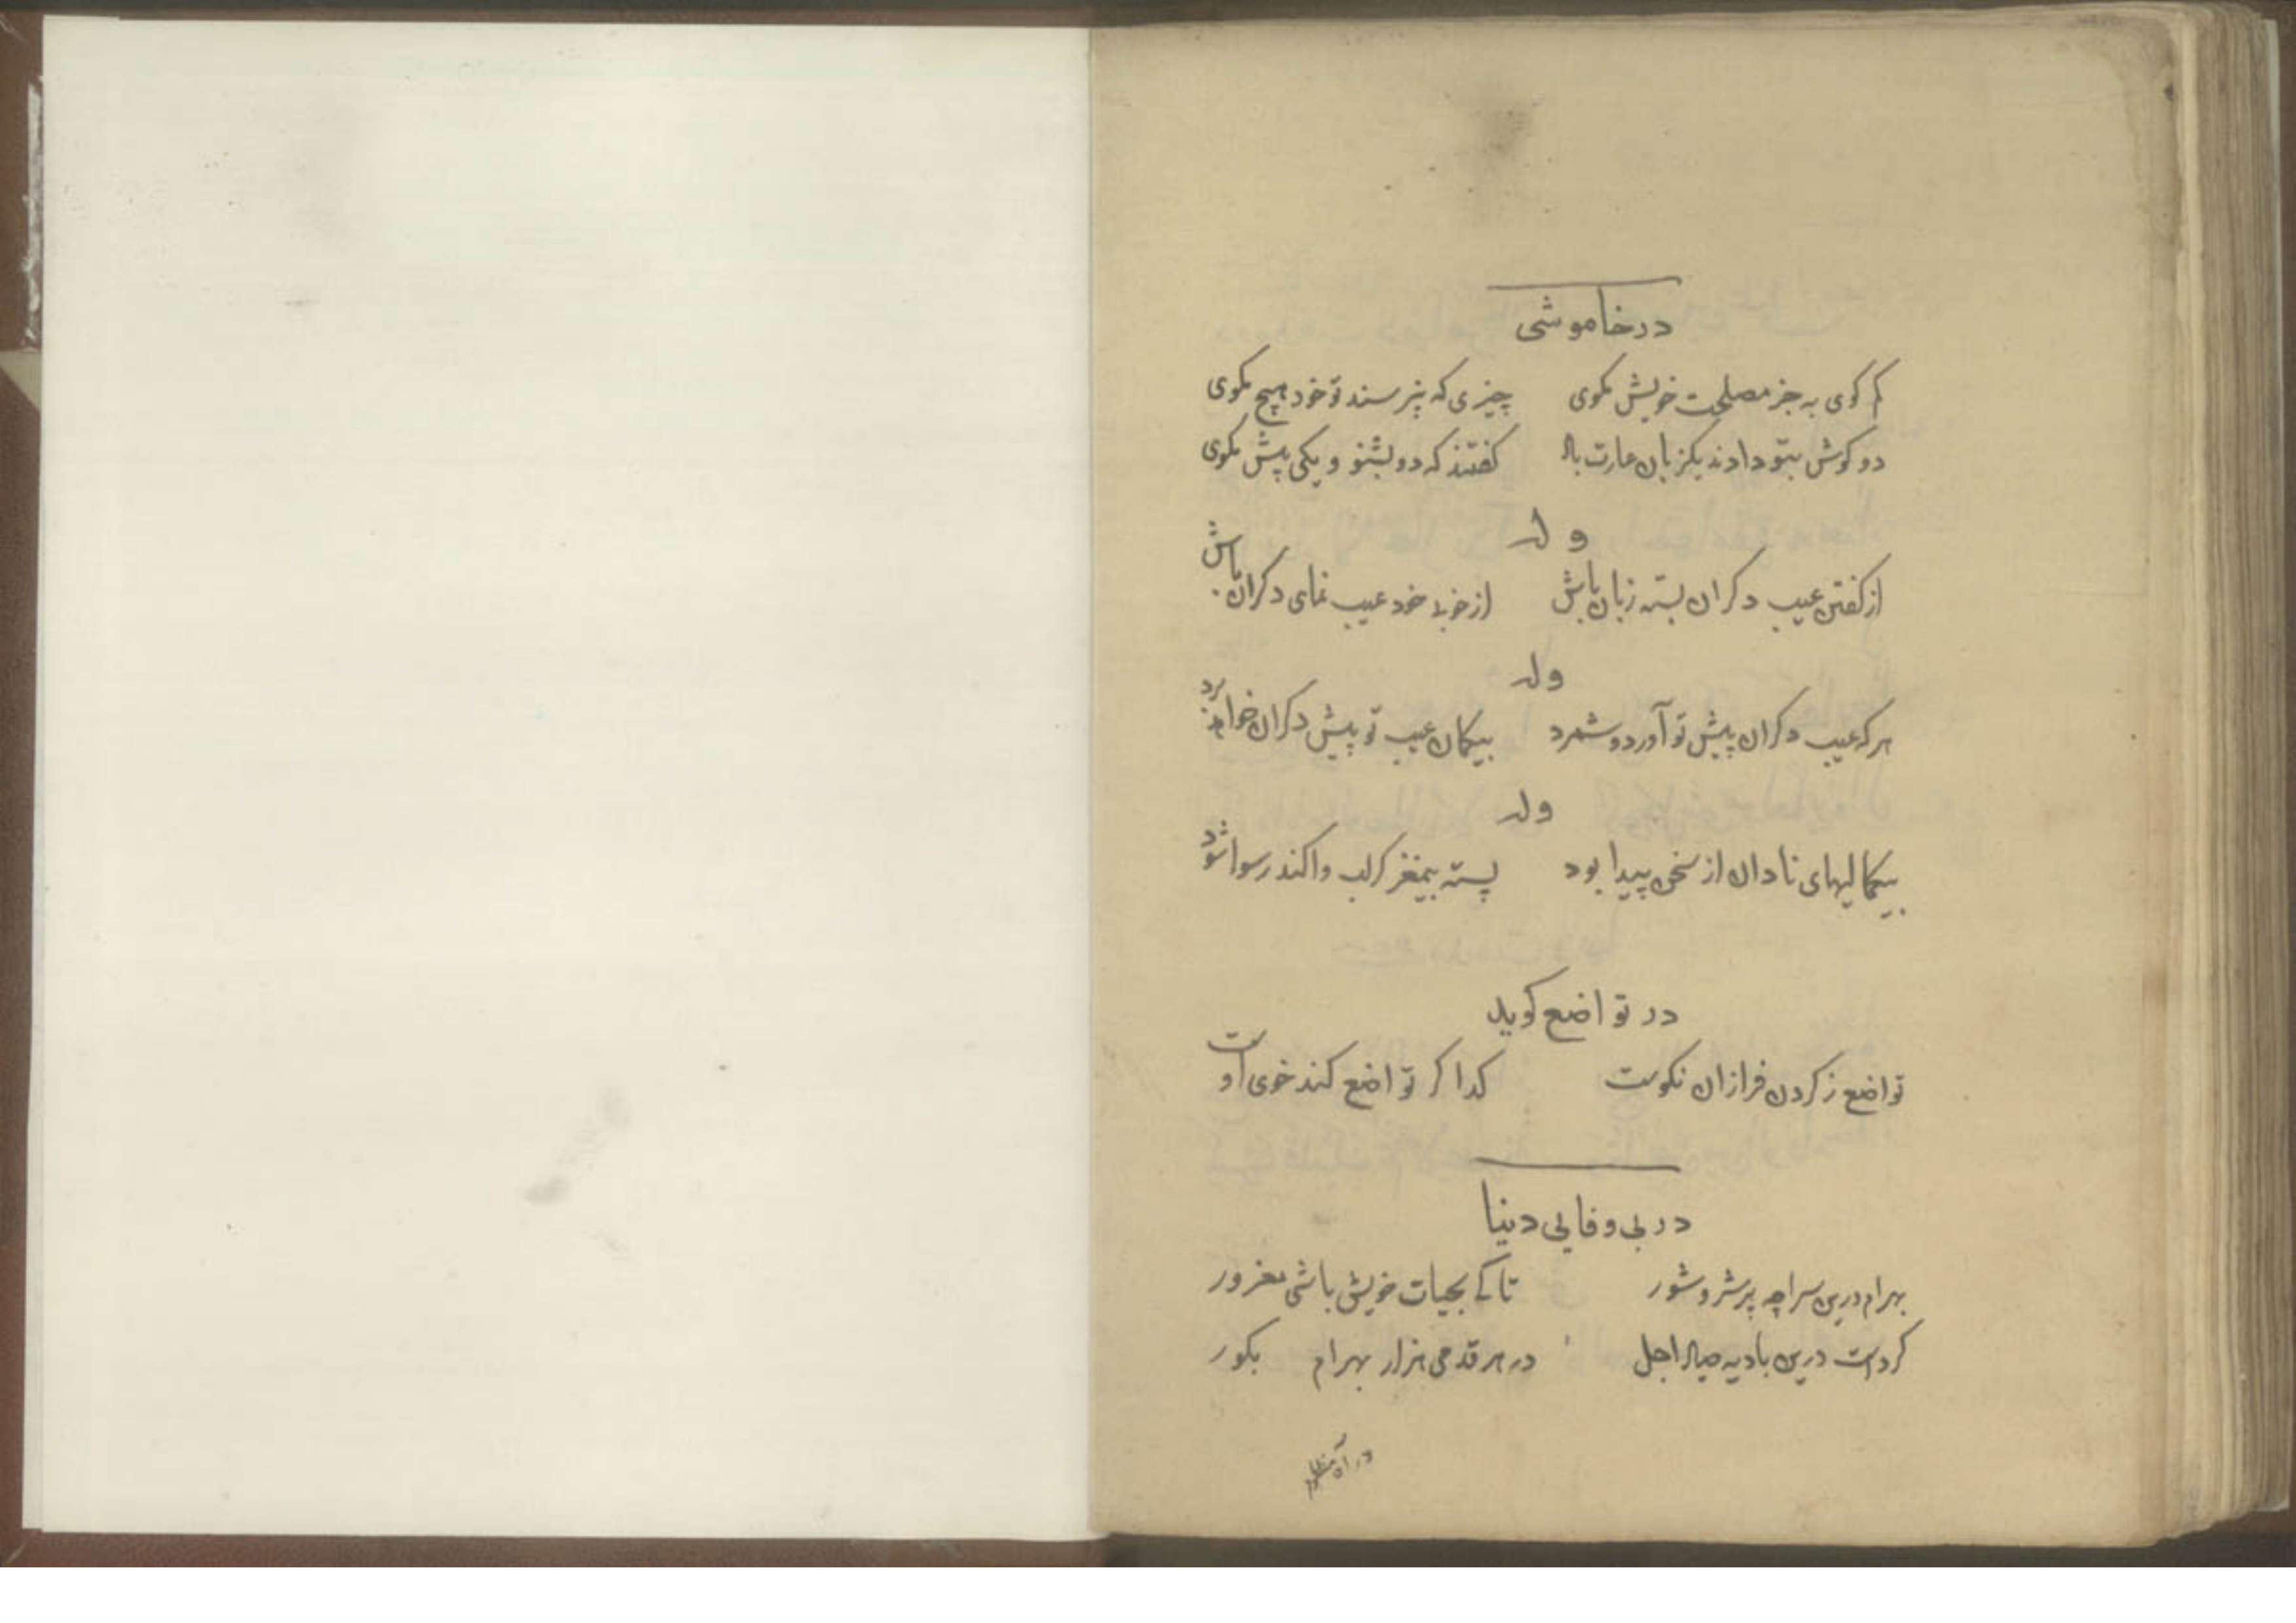 در خاموشی
کم کوی به جز مصلحت خویش مکوی چیزی که نپرسند تو خود هیچ مکوی
دو کوش بتو دادند یک زبان کفتند که دو بشنو و یکی بیش مکوی
وله
از کفتن عیب دکران بسته زبان باش از خود عیب نمای دکران باش
وله
هر که عیب دکران پیش تو آورد و شمرد بیکمان عیب تو پیش دکران خواهد برد
وله
بیکمالیهای نادان از سخن پیدا بود پسته بیمغز کر لب وا کند رسوا شود
در تواضع کوید
تواضع ز کردن فرازان نکوست کدا کر تواضع کند خوی اوست
در بی وفایی دنیا
بهرام درین سراچه پر شر و شور تا کے بحیات خویش باشی مغرور
کردست درین بادیه صیاد اجل در هر قدمی هزار بهرام بکور